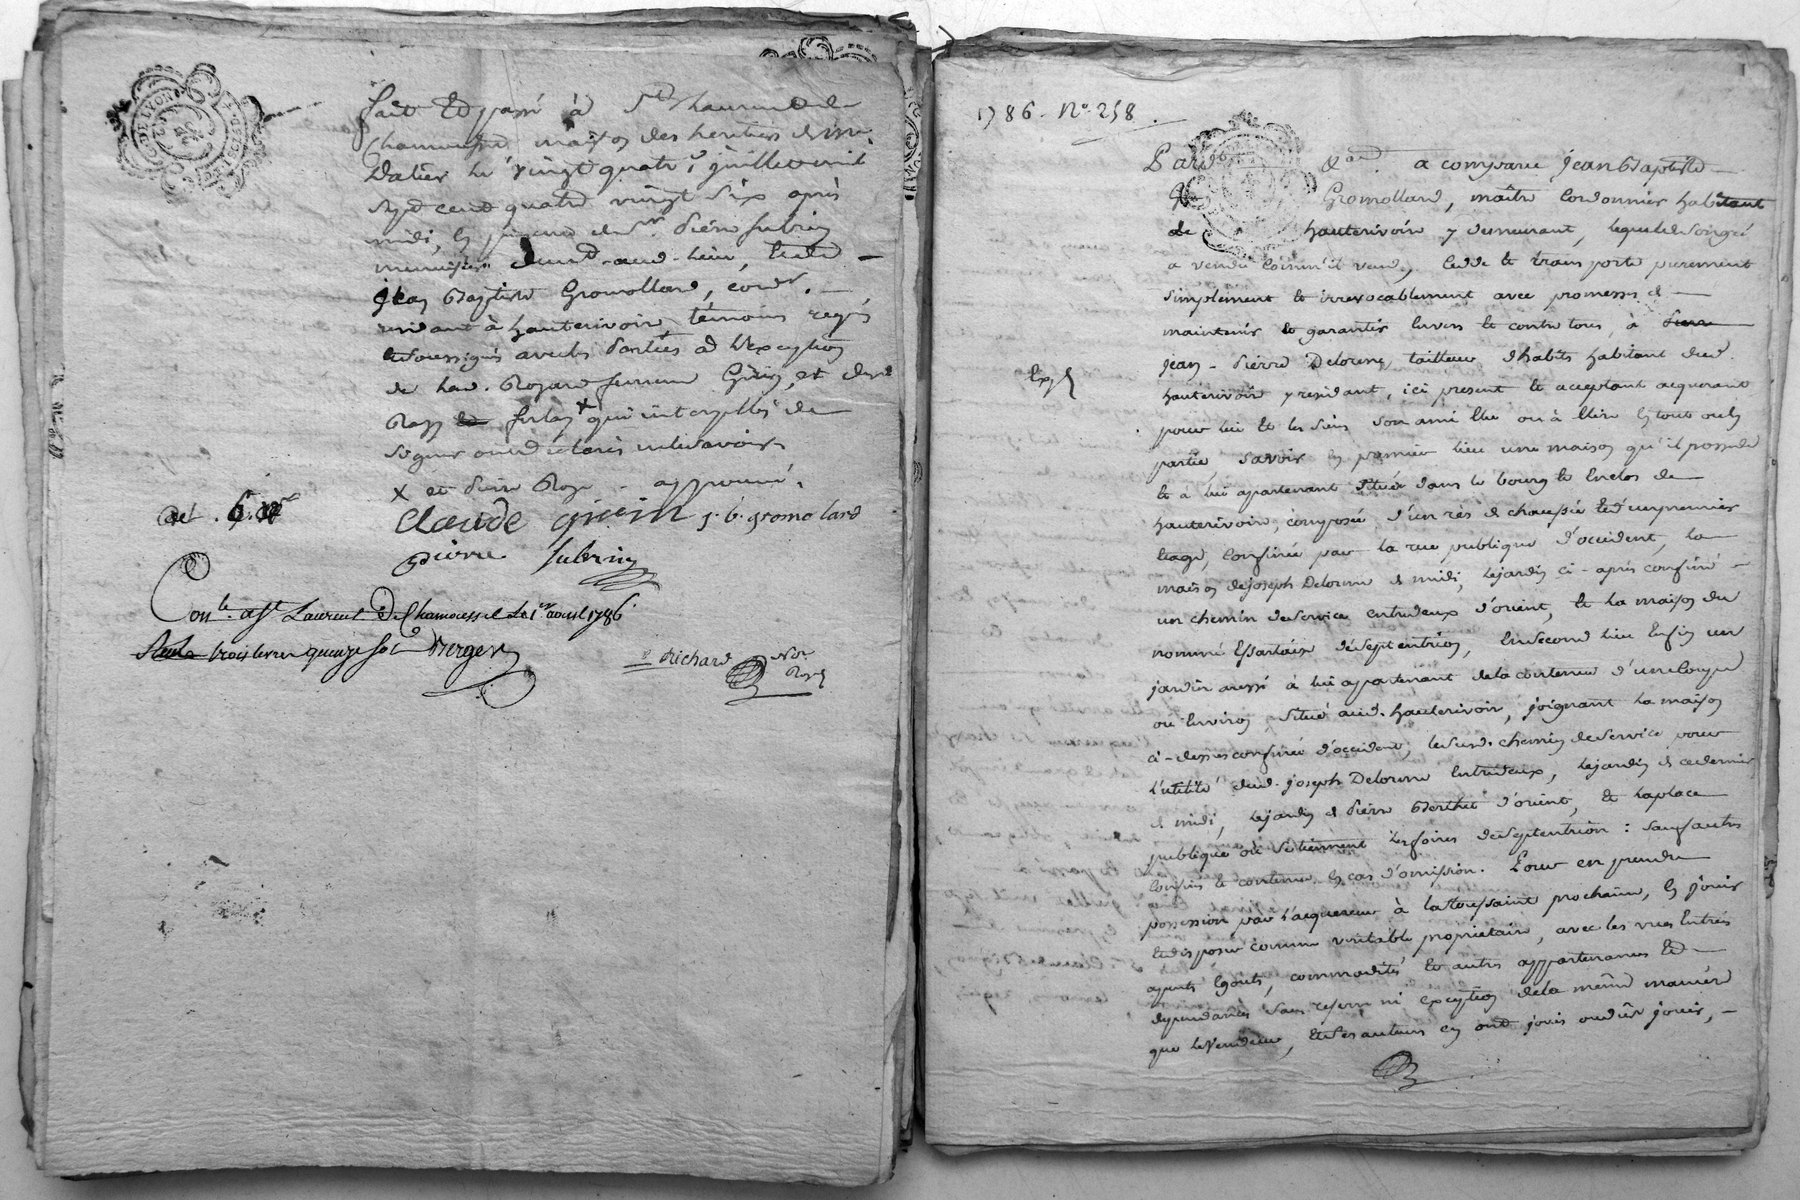 G. DE LYON
fait et passé à St Laurent de
Chamousset maison des heritiers de
Dalier le vingt quatre juillet mil
sept cent quatre vingt six après
midi, en presence de Sr Pierre Subrin
menuisier dud. lieu, et de
Jean Baptiste Gromollard, cordr.
residant à hauterivoire, témoins requis
et soussignés avec les parties à l'exception
de lad. femme Guerin, et dud.
qui interpellés de
signer ont déclaré ne le savoir
X et pierre approuvé.
Claude guerin j. b. gromolard
pierre subrin
Conlé. a St Laurent De Chamousset le 1er aout 1786
trois livres quinze s.
Richard Nore
Royal
1786. N° 258.
Pard. &a. a comparu Jean Baptiste
Gromollard, maître cordonnier habitant
de hauterivoire y demeurant, lequel de son gré
a vendu comm'il vend, cedde et transporte purement
simplement et irrevocablement avec promesse de
maintenir et garantir envers et contre tous, à
Jean-Pierre Delorme tailleur d'habits habitant dud.
hauterivoire y residant, ici present et acceptant acquerant
pour lui et les siens son ami élu ou à élire en tout ou en
partie, savoir en premier lieu une maison qu'il possede
et à lui appartenant située dans le bourg et enclos de
hauterivoire, composée d'un rès de chaussée et d'un premier
étage, confinée par la rue publique d'occident, la
maison de joseph Delorme de midi, le jardin ci-après confiné
un chemin de service entredeux d'orient, et la maison du
nommé Essartais de septentrion, en second lieu enfin un
jardin aussi à lui appartenant de la contenue d'une coupe
ou environ situé aud. hauterivoire, joignant la maison
ci-dessus confinée d'occident, le susd. chemin de service pour
l'utilité dud. joseph Delorme entredeux, le jardin de ce dernier
de midi, le jardin de Pierre Berthet d'orient, et la place
publique où se tiennent les foires de septentrion : sauf autres
confins et contenue en cas d'omission. Pour en prendre
possession par l'acquereur à la toussaint prochaine, en jouir
et disposer comme veritable proprietaire, avec les vues entrées
egouts, commodités et autres appartenances et
dependances sans reserve ni exception de la même maniere
que le vendeur, et ses auteurs en ont joui ou dû jouir,